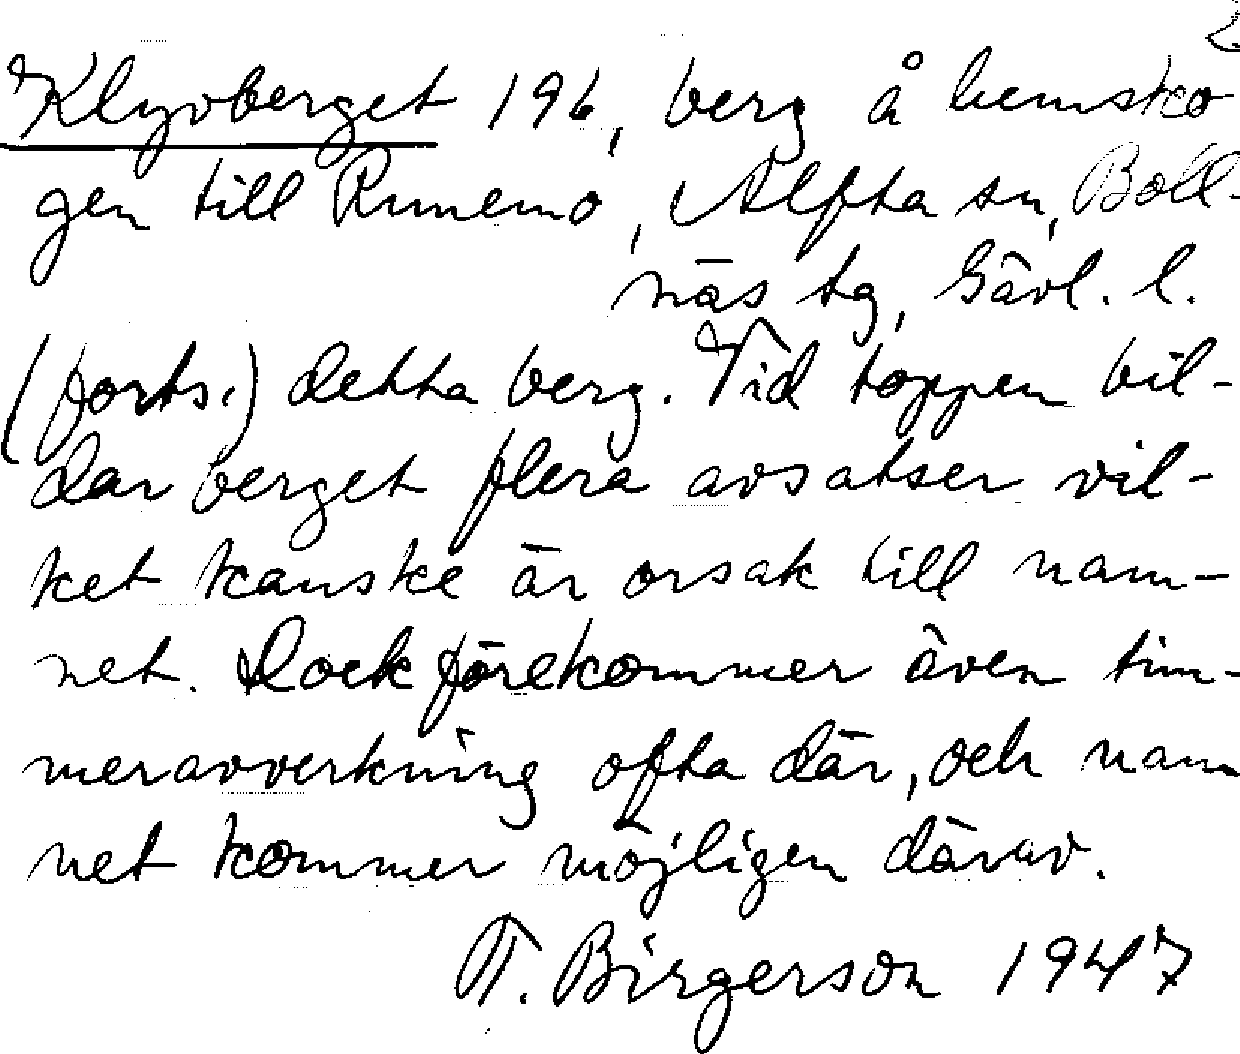 2
Klyvberget 196, berg å hemsko
gen till Runemo, Alfta sn, Boll-
näs tg, Gävl. l.
(forts.) detta berg. Vid toppen bil-
dar berget flera avsatser vil-
ket kanske är orsak till nam-
net. Dock förekommer även tim-
meravverkning ofta där, och nam
net kommer möjligen därav.
T. Birgerson 1947